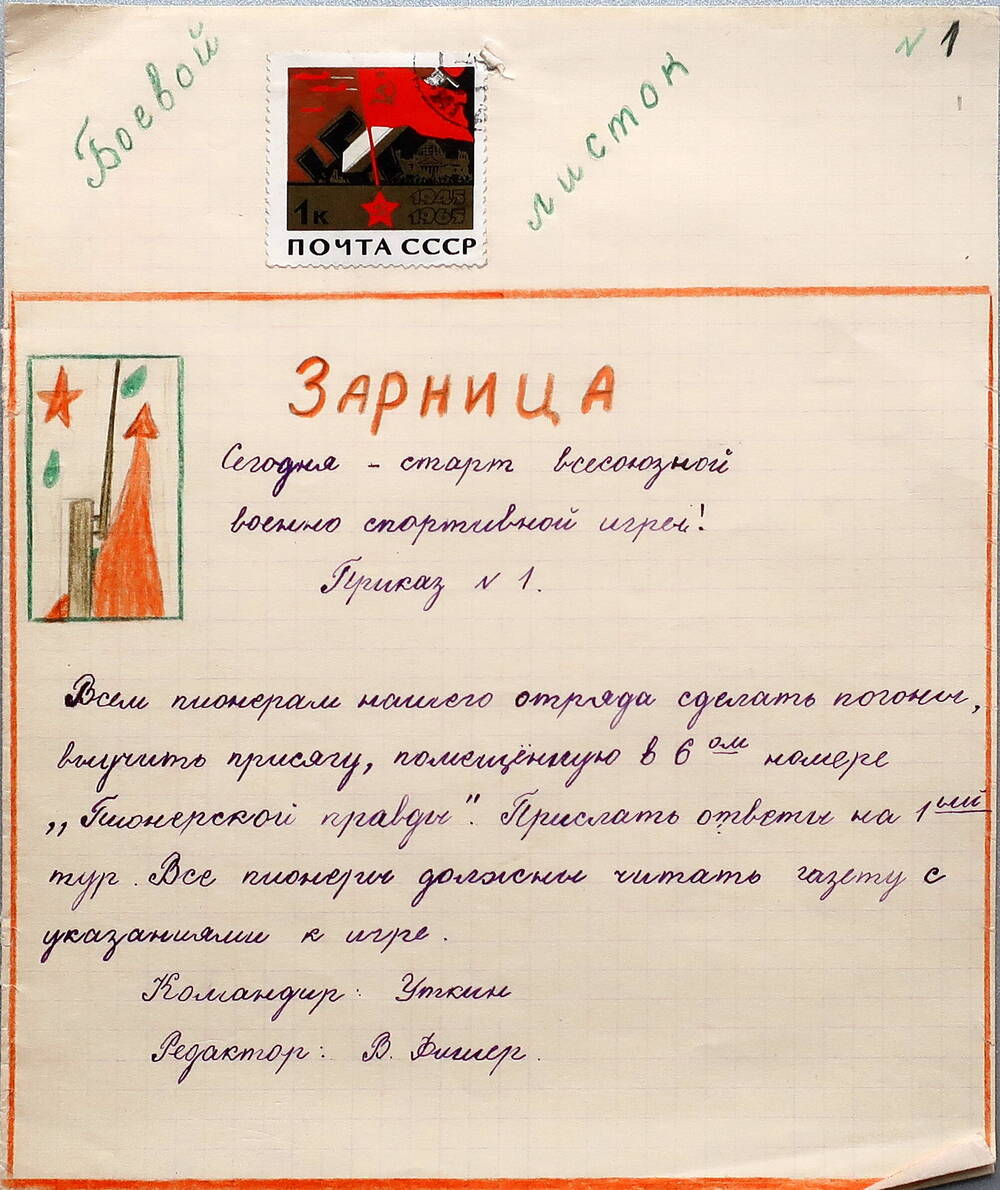 Боевой листок № 1
1к 1945
1965
ПОЧТА СССР
ЗАРНИЦА
Сегодня - старт всесоюзной
военно спортивной игры!
Приказ № 1.
Всем пионерам нашего отряда сделать погоны,
выучить присягу, помещённую в 6 ом номере
„Пионерской правды". Прислать ответы на 1 ый
тур. Все пионеры должны читать газету с
указаниями к игре.
Командир: Уткин
Редактор: В. Фишер.